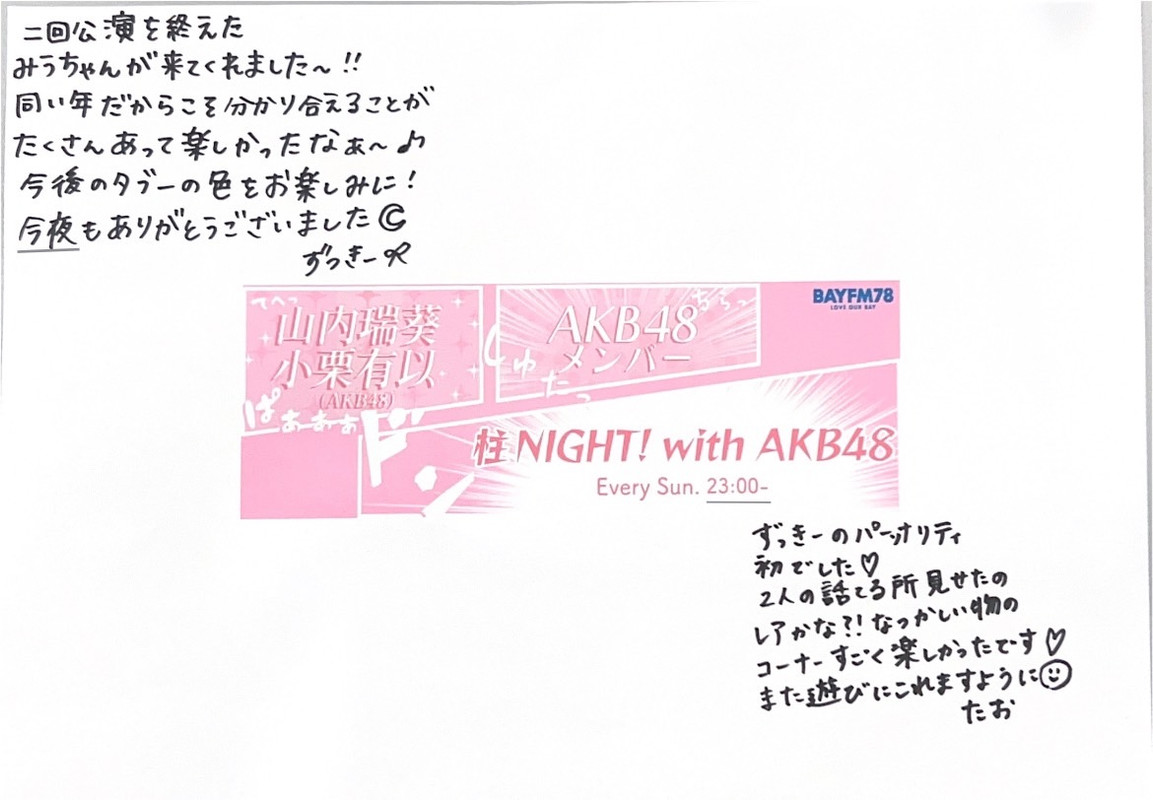 二回公演を終えた
みうちゃんが来てくれました〜!!
同い年だからこそ分かり合えることが
たくさんあって楽しかったなぁ〜♪
今後のタブーの色をお楽しみに!
今夜もありがとうございました
ずっきー
てへっ
山内瑞葵
小栗有以
(AKB48)
ぱぁぁぁぁ
AKB48
メンバー
しゅたっ
BAYFM78
LOVE OUR BAY
柱NIGHT! with AKB48
Every Sun. 23:00-
ずっきーのパーソナリティ
初でした♡
2人の話てる所見せたの
レアかな?!なつかしい物の
コーナーすごく楽しかったです♡
また遊びにこれますように☺
たお